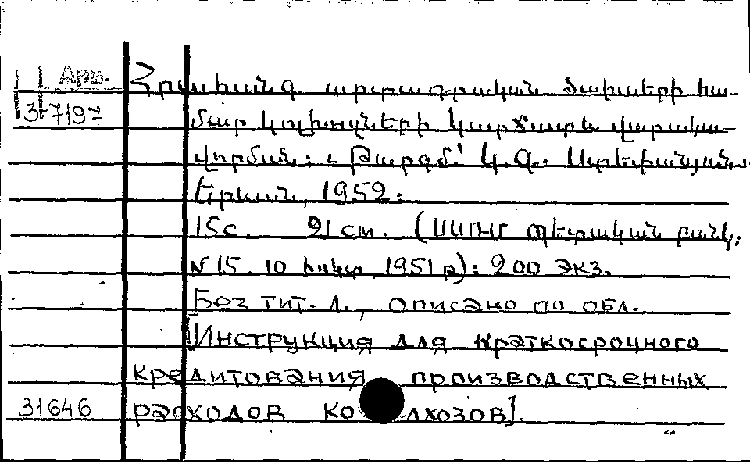 Арм.
3-7197
Հրահանգ արտադրական ծախսերի հա-
մար կոլխոզների կարճատև վարկա-
վորման: Թարգմ.՝ Կ.Գ. Ստեփանյան.
Երևան, 1952:
15с. 21 см. (ՍՍՌՄ պետական բանկ:
N 15. 10 հոկտ. 1951 թ): 200 экз.
Без тит. л., описано по обл.
[Инструкция для краткосрочного
кредитования производственных
31646 расходов колхозов].